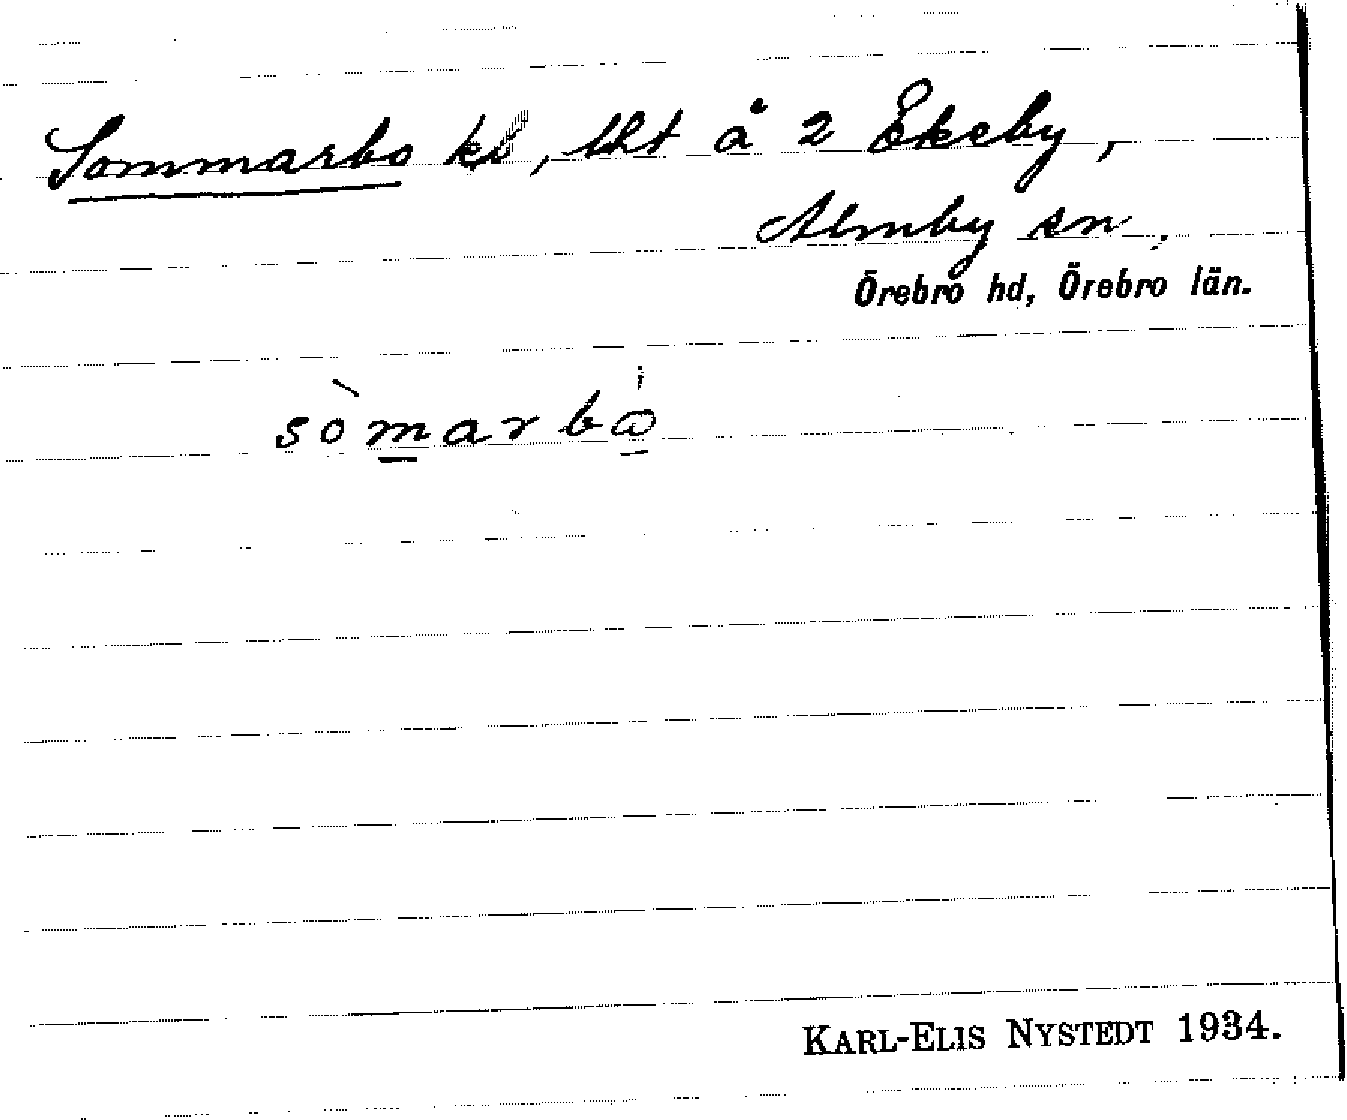 Sommarbo kl, lht å 2 Ekeby,
Almby sn,
Örebro hd, Örebro län.
sòmarbo
KARL-ELIS NYSTEDT 1934.